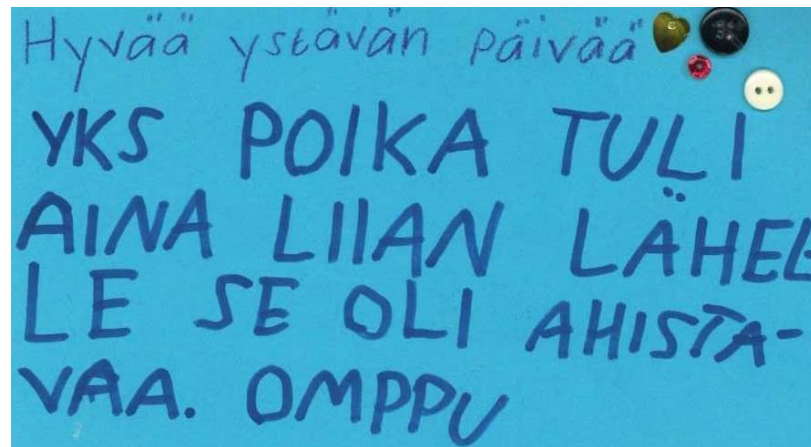 Hyvää ystävän päivää
YKS POIKA TULI
AINA LIIAN LÄHEL
LE SE OLI AHISTA-
VAA. OMPPU